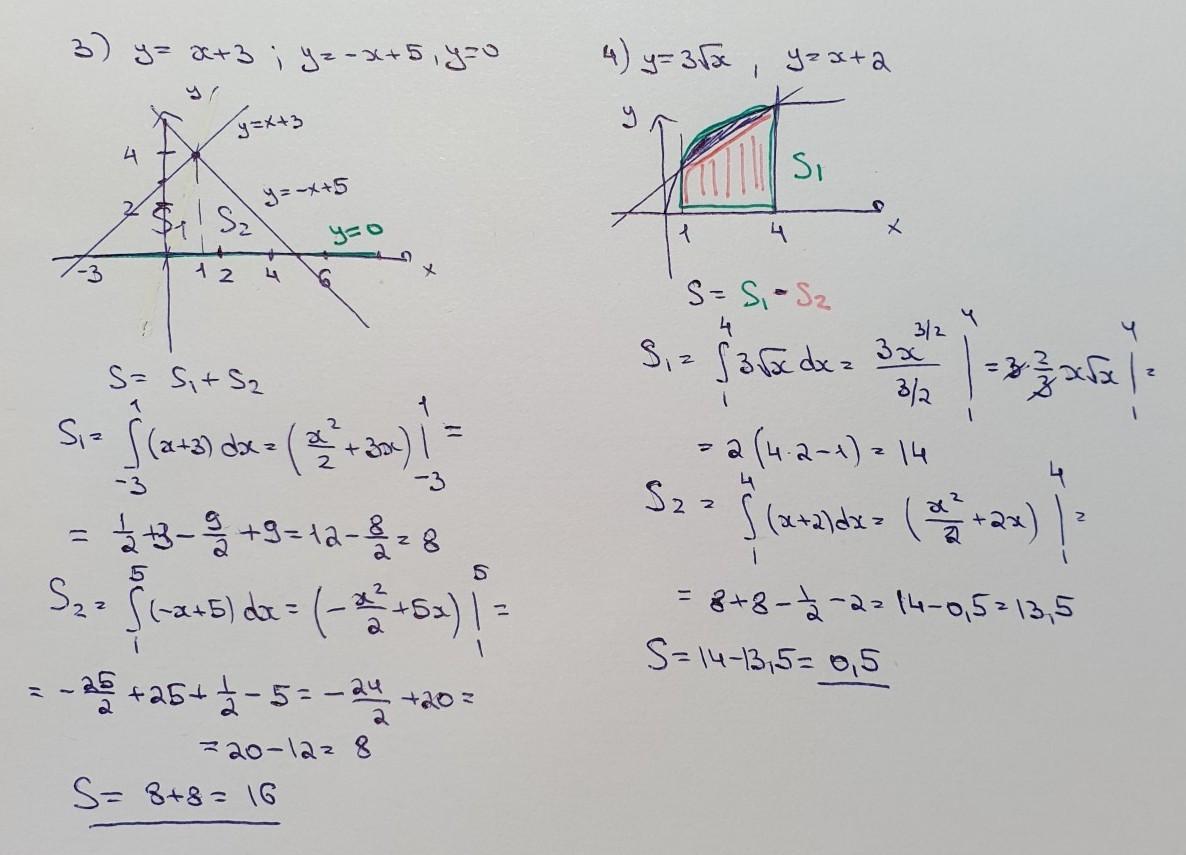 3) y = x+3 ; y = -x+5, y=0
y
y=x+3
4
y=-x+5
2
S₁ S₂
y=0
-3 1 2 4 6 x
S = S₁ + S₂
S₁ = ∫₋₃¹ (x+3) dx = (x²/2 + 3x) |₋₃¹ =
= 1/2 + 3 - 9/2 + 9 = 12 - 8/2 = 8
S₂ = ∫₁⁵ (-x+5) dx = (-x²/2 + 5x) |₁⁵ =
= -25/2 + 25 + 1/2 - 5 = -24/2 + 20 =
= 20 - 12 = 8
S = 8+8 = 16
4) y = 3√x , y = x+2
y
S₁
1 4 x
S = S₁ - S₂
S₁ = ∫₁⁴ 3√x dx = 3x^(3/2) / (3/2) |₁⁴ = 3 · 2/3 x√x |₁⁴ =
= 2(4·2-1) = 14
S₂ = ∫₁⁴ (x+2) dx = (x²/2 + 2x) |₁⁴ =
= 8+8 - 1/2 - 2 = 14 - 0,5 = 13,5
S = 14 - 13,5 = 0,5